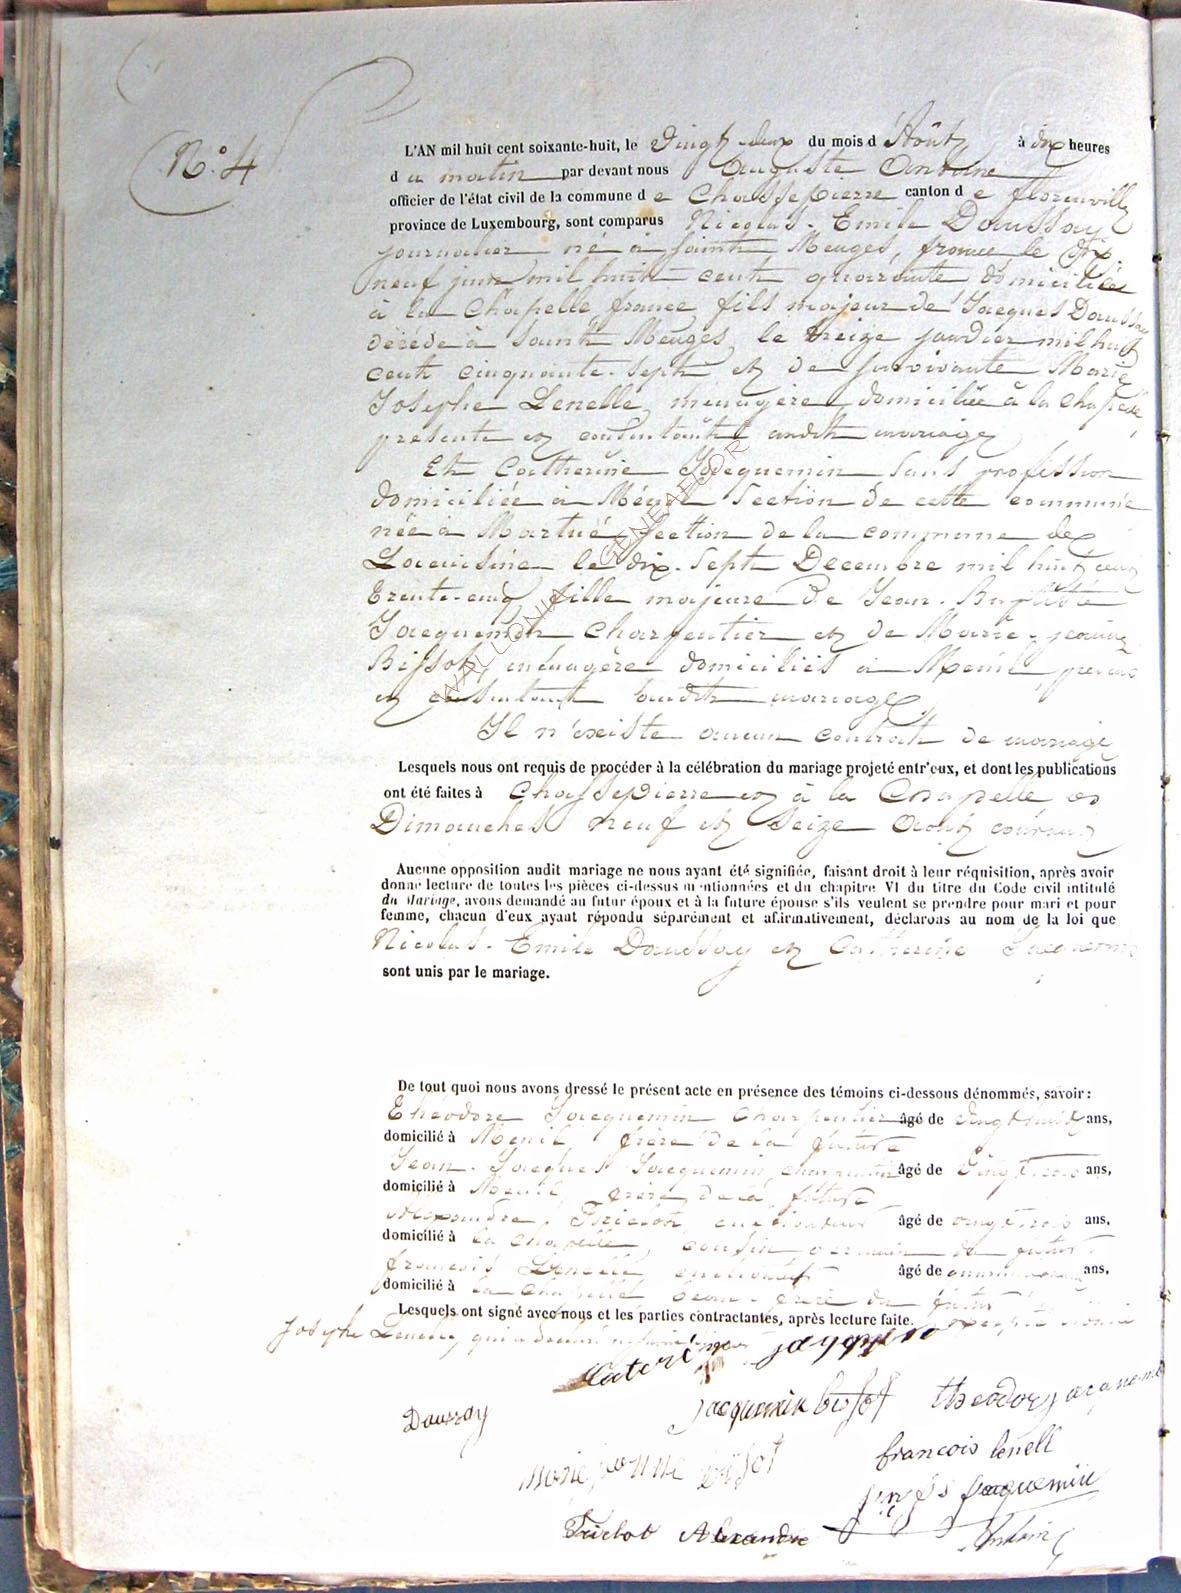 N.º 4
L'AN mil huit cent soixante-huit, le Vingt deux du mois d'Août à dix heures
du matin par devant nous Auguste Antoine
officier de l'état civil de la commune de Chassepierre canton de florenville
province de Luxembourg, sont comparus Nicolas-Emile Daussay
journalier né à Saint Menges, france le dix-
neuf juin mil huit cent quarante domicilié
à la Chapelle france fils majeur de Jacques Daussay
décédé à Saint Menges, le treize janvier mil huit
cent cinquante-sept et de survivante Marie
Josephe Lenelle, ménagère, domiciliée à la chapelle,
presente et consentante audit mariage
Et Catherine Jacquemin sans profession
domiciliée à Ménil section de cette commune
née à Martué section de la commune de
Lacuisine le dix-sept Decembre mil huit cent
trente-cinq fille majeure de Jean-Baptiste
Jacquemin charpentier et de Marie-jeanne
Bissot, ménagère domiciliés à Menil, present
et consentant audit mariage
Il n'existe aucun contrat de mariage
Lesquels nous ont requis de procéder à la célébration du mariage projeté entr'eux, et dont les publications
ont été faites à Chassepierre et à la Chapelle les
Dimanches neuf et seize Août courant
Aucune opposition audit mariage ne nous ayant été signifiée, faisant droit à leur réquisition, après avoir
donné lecture de toutes les pièces ci-dessus mentionnées et du chapitre VI du titre du Code civil intitulé
du Mariage, avons demandé au futur époux et à la future épouse s'ils veulent se prendre pour mari et pour
femme, chacun d'eux ayant répondu séparément et affirmativement, déclarons au nom de la loi que
Nicolas-Emile Daussay et Catherine Jacquemin
sont unis par le mariage.
De tout quoi nous avons dressé le présent acte en présence des témoins ci-dessous dénommés, savoir:
Théodore Jacquemin charpentier âgé de vingt huit ans,
domicilié à Menil, frère de la future
Jean-Jacques Jacquemin, charpentier âgé de vingt trois ans,
domicilié à Menil, frère de la future
Alexandre Triclot, cultivateur âgé de vingt trois ans,
domicilié à la chapelle, cousin germain du futur
françois Lenelle cultivateur âgé de ans,
domicilié à la chapelle beau-frère du futur
Lesquels ont signé avec nous et les parties contractantes, après lecture faite. excepté Marie
Josephe Lenelle, qui a déclaré
Catherine jacquemin
Daussay jacquemin bissot theodor jacquemin
marie jeanne bissot francois lenell
jn js jacquemin
Triclot Alexandre Antoine
WALLONIA GENEAFLOR